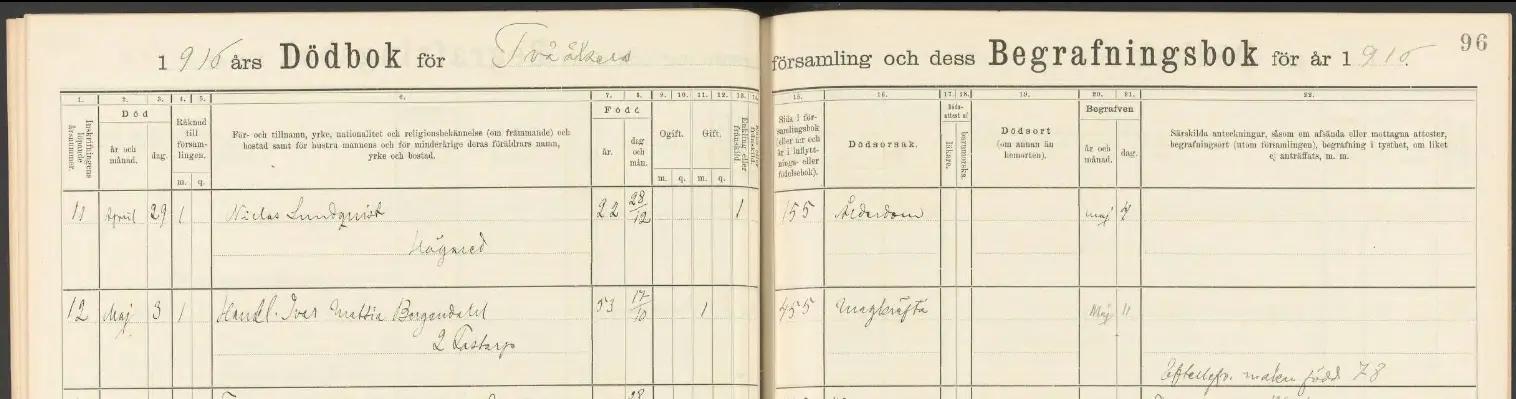 1915 års Dödbok för Tvååkers
församling och dess Begrafningsbok för år 1915.
96
1. 2. 3. 4. 5. 6. 7. 8. 9. 10. 11. 12. 13. 14.
Inskrifningens löpande årsnummer.
Död
år och månad.
dag.
Räknad till församlingen.
m. q.
För- och tillnamn, yrke, nationalitet och religionsbekännelse (om främmande) och
bostad samt för hustru mannens och för minderårige deras föräldrars namn,
yrke och bostad.
Född
år.
dag och mån.
Ogift.
m. q.
Gift.
m. q.
Enkling eller frånskild
15. 16. 17. 18. 19. 20. 21. 22.
Sida i församlingsbok
(eller nr och
år i inflyttnings- eller
födelsebok).
Dödsorsak.
Dödsattest af
läkare.
barnmorska.
Dödsort
(om annan än
hemorten).
Begrafven
år och månad.
dag.
Särskilda anteckningar, såsom om afsända eller mottagna attester,
begrafningsort (utom församlingen), begrafning i tysthet, om liket
ej anträffats, m. m.
11 April 29 1 Niclas Lundqvist 22 28/12 1 155 Ålderdom maj 7
Högared
12 Maj 3 1 Handl. Ivar Mattis Bergendahl 53 17/10 1 455 Magkräfta Maj 11
2 Fastarp
Efterlefv. maken född 78